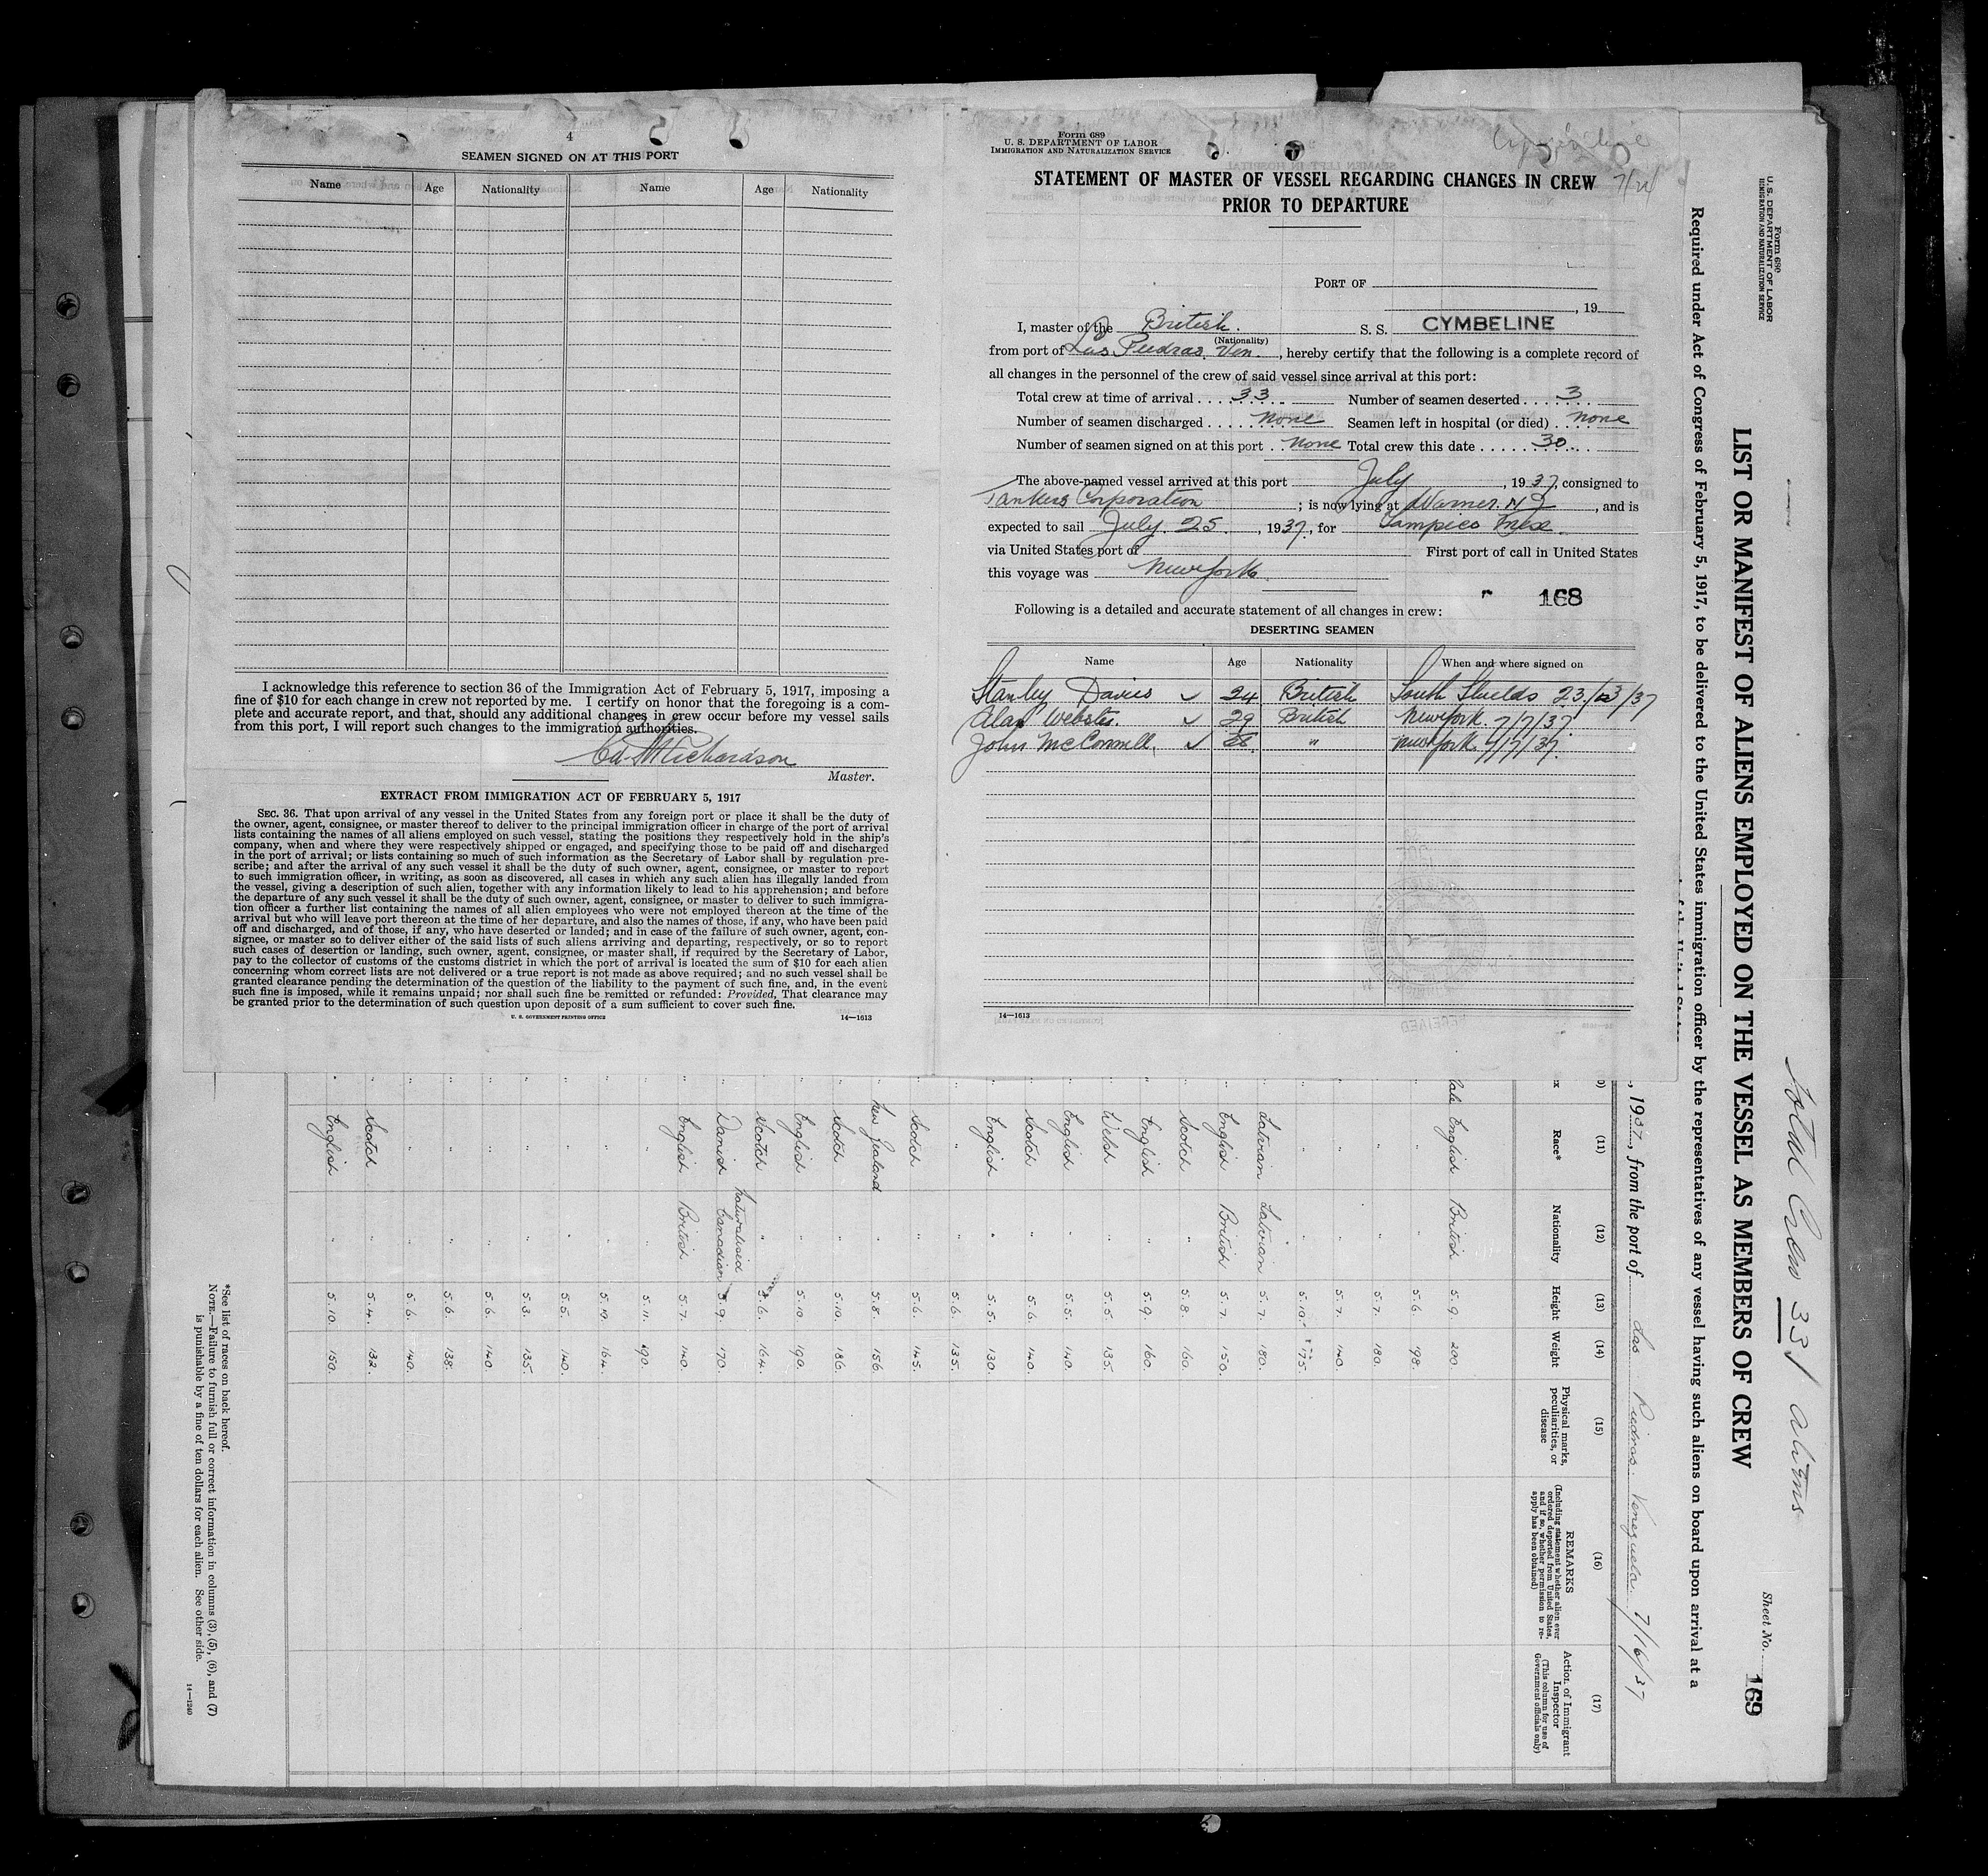 4
SEAMEN SIGNED ON AT THIS PORT
Name Age Nationality Name Age Nationality
I acknowledge this reference to section 36 of the Immigration Act of February 5, 1917, imposing a
fine of $10 for each change in crew not reported by me. I certify on honor that the foregoing is a com-
plete and accurate report, and that, should any additional changes in crew occur before my vessel sails
from this port, I will report such changes to the immigration authorities.
Richardson
Master.
EXTRACT FROM IMMIGRATION ACT OF FEBRUARY 5, 1917
SEC. 36. That upon arrival of any vessel in the United States from any foreign port or place it shall be the duty of
the owner, agent, consignee, or master thereof to deliver to the principal immigration officer in charge of the port of arrival
lists containing the names of all aliens employed on such vessel, stating the positions they respectively hold in the ship's
company, when and where they were respectively shipped or engaged, and specifying those to be paid off and discharged
in the port of arrival; or lists containing so much of such information as the Secretary of Labor shall by regulation pre-
scribe; and after the arrival of any such vessel it shall be the duty of such owner, agent, consignee, or master to report
to such immigration officer, in writing, as soon as discovered, all cases in which any such alien has illegally landed from
the vessel, giving a description of such alien, together with any information likely to lead to his apprehension; and before
the departure of any such vessel it shall be the duty of such owner, agent, consignee, or master to deliver to such immigra-
tion officer a further list containing the names of all alien employees who were not employed thereon at the time of the
arrival but who will leave port thereon at the time of her departure, and also the names of those, if any, who have been paid
off and discharged, and of those, if any, who have deserted or landed; and in case of the failure of such owner, agent, con-
signee, or master so to deliver either of the said lists of such aliens arriving and departing, respectively, or so to report
such cases of desertion or landing, such owner, agent, consignee, or master shall, if required by the Secretary of Labor,
pay to the collector of customs of the customs district in which the port of arrival is located the sum of $10 for each alien
concerning whom correct lists are not delivered or a true report is not made as above required; and no such vessel shall be
granted clearance pending the determination of the question of the liability to the payment of such fine, and, in the event
such fine is imposed, while it remains unpaid; nor shall such fine be remitted or refunded: Provided, That clearance may
be granted prior to the determination of such question upon deposit of a sum sufficient to cover such fine.
U. S. GOVERNMENT PRINTING OFFICE 14—1613
Form 689
U. S. DEPARTMENT OF LABOR
IMMIGRATION AND NATURALIZATION SERVICE
Cymbeline
STATEMENT OF MASTER OF VESSEL REGARDING CHANGES IN CREW
PRIOR TO DEPARTURE
PORT OF
, 19
I, master of the British. S. S. CYMBELINE
(Nationality)
from port of Las Piedras. Ven. , hereby certify that the following is a complete record of
all changes in the personnel of the crew of said vessel since arrival at this port:
Total crew at time of arrival . . . . 33 Number of seamen deserted . . . . 3
Number of seamen discharged . . . . . none Seamen left in hospital (or died) . . . . none
Number of seamen signed on at this port . . none Total crew this date . . . . . . . . . 30
The above-named vessel arrived at this port July , 1937, consigned to
Tankers Corporation ; is now lying at Warner. NJ , and is
expected to sail July. 25 , 1937., for Tampico Mex
via United States port of First port of call in United States
this voyage was New York.
168
Following is a detailed and accurate statement of all changes in crew:
DESERTING SEAMEN
Name Age Nationality When and where signed on
Stanley Davies ✓ 24 British South Shields 23/3/37
Alan Webster ✓ 29 British New York. 7/7/37.
John McConnell. ✓ " New York. 7/7/37.
14—1613
Form 689
U. S. DEPARTMENT OF LABOR
IMMIGRATION AND NATURALIZATION SERVICE
Total Crew 33 / aliens
Sheet No. 169
LIST OR MANIFEST OF ALIENS EMPLOYED ON THE VESSEL AS MEMBERS OF CREW
Required under Act of Congress of February 5, 1917, to be delivered to the United States immigration officer by the representatives of any vessel having such aliens on board upon arrival at a
, 1937, from the port of Las Piedras. Venezuela. 7/16/37
(11) (12) (13) (14) (15) (16) (17)
Race* Nationality Height Weight Physical marks, peculiarities, or disease REMARKS (Including statement whether alien ever ordered deported from United States, and if so, whether permission to re-apply has been obtained) Action of Immigrant Inspector (This column for use of Government officials only)
English British 5.9. 200.
" " 5.6. 198.
" " 5.7. 180.
" " 5.7. 140.
" " 5.10. 175.
Latvian Latvian 5.7. 180.
English British 5.7. 150.
Scotch " 5.8. 160.
English " 5.9. 160.
Welsh " 5.5. 135.
English " 5.5. 140.
Scotch " 5.6. 140.
English " 5.5. 130.
" " 5.6. 135.
Scotch " 5.6. 145.
New Zealand " 5.8. 156.
Scotch " 5.10. 186.
English " 5.10. 190.
Scotch " 5.6. 164.
Danish Naturalised Canadian 5.9. 170.
English British 5.7. 140.
" " 5.11. 190.
" " 5.10. 164.
" " 5.5. 140.
" " 5.3. 135.
" " 5.6. 140.
" " 5.6. 138.
" " 5.6. 140.
Scotch " 5.4. 132.
English " 5.10. 150.
*See list of races on back hereof.
NOTE.—Failure to furnish full or correct information in columns (3), (5), (6), and (7)
is punishable by a fine of ten dollars for each alien. See other side.
14—1240